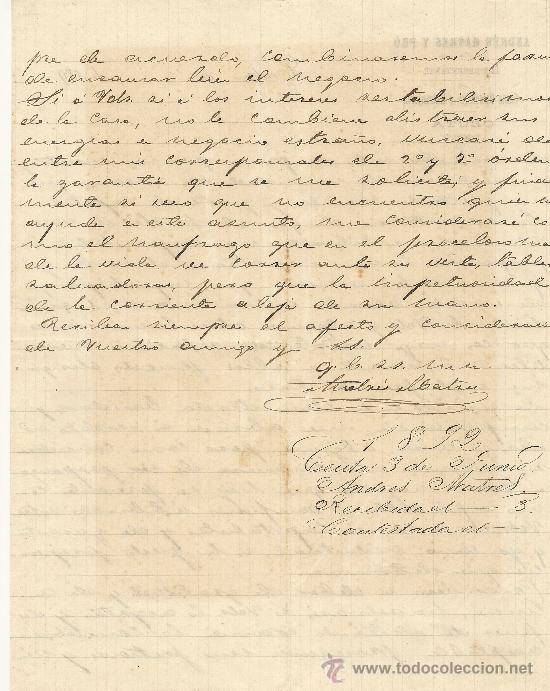 pre de acuerdo, combinaremos la forma
de encauzar bien el negocio.
Si a Vds. si á los intereses
de la Casa, no le conviene distraer sus
energias a negocio estraño, buscaré de
entre mis corresponsales de 2º y 3º orden
la garantia que se me solicita; y final
mente si veo que no encuentro quien me
ayude a este asunto, me consideraré co
mo el naufrago que en el proceloso mar
de la vida ve correr ante su vista, tablas
salvadoras, pero que la impetuosidad
de la corriente aleja de su mano.
Reciban siempre el afecto y consideracion
de Vuestro amigo y SS.
q. b. ss. m m
Andrés Matres
1892
Ceuta 3 de Junio
Andres Matres
Recibida el — 3
Contestada el —
ANDRÉS MATRES Y PRO
www.todocoleccion.net